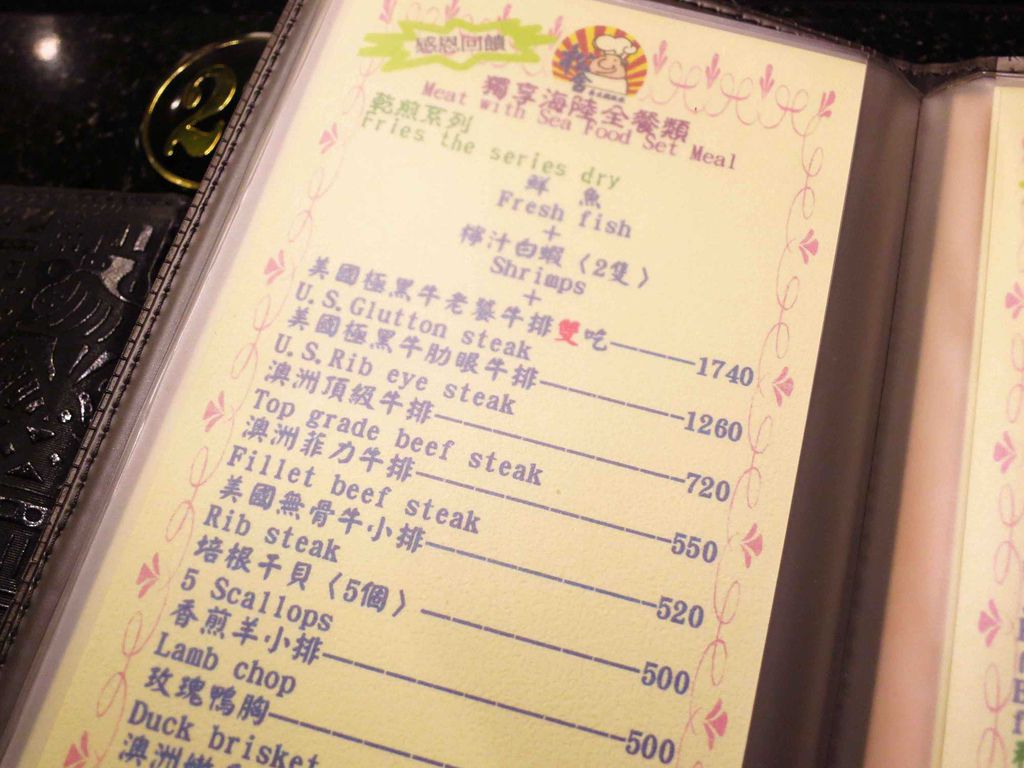 2
感恩回饋
獨享海陸全餐類
Meat with Sea Food Set Meal
乾煎系列
Fries the series dry
鮮 魚
Fresh fish
+
檸汁白蝦〈2隻〉
Shrimps
+
美國極黑牛老饕牛排雙吃——————1740
U.S.Glutton steak
美國極黑牛肋眼牛排——————1260
U.S.Rib eye steak
澳洲頂級牛排——————720
Top grade beef steak
澳洲菲力牛排——————550
Fillet beef steak
美國無骨牛小排——————520
Rib steak
培根干貝〈5個〉——————500
5 Scallops
香煎羊小排——————500
Lamb chop
玫瑰鴨胸——————
Duck brisket
澳洲嫩